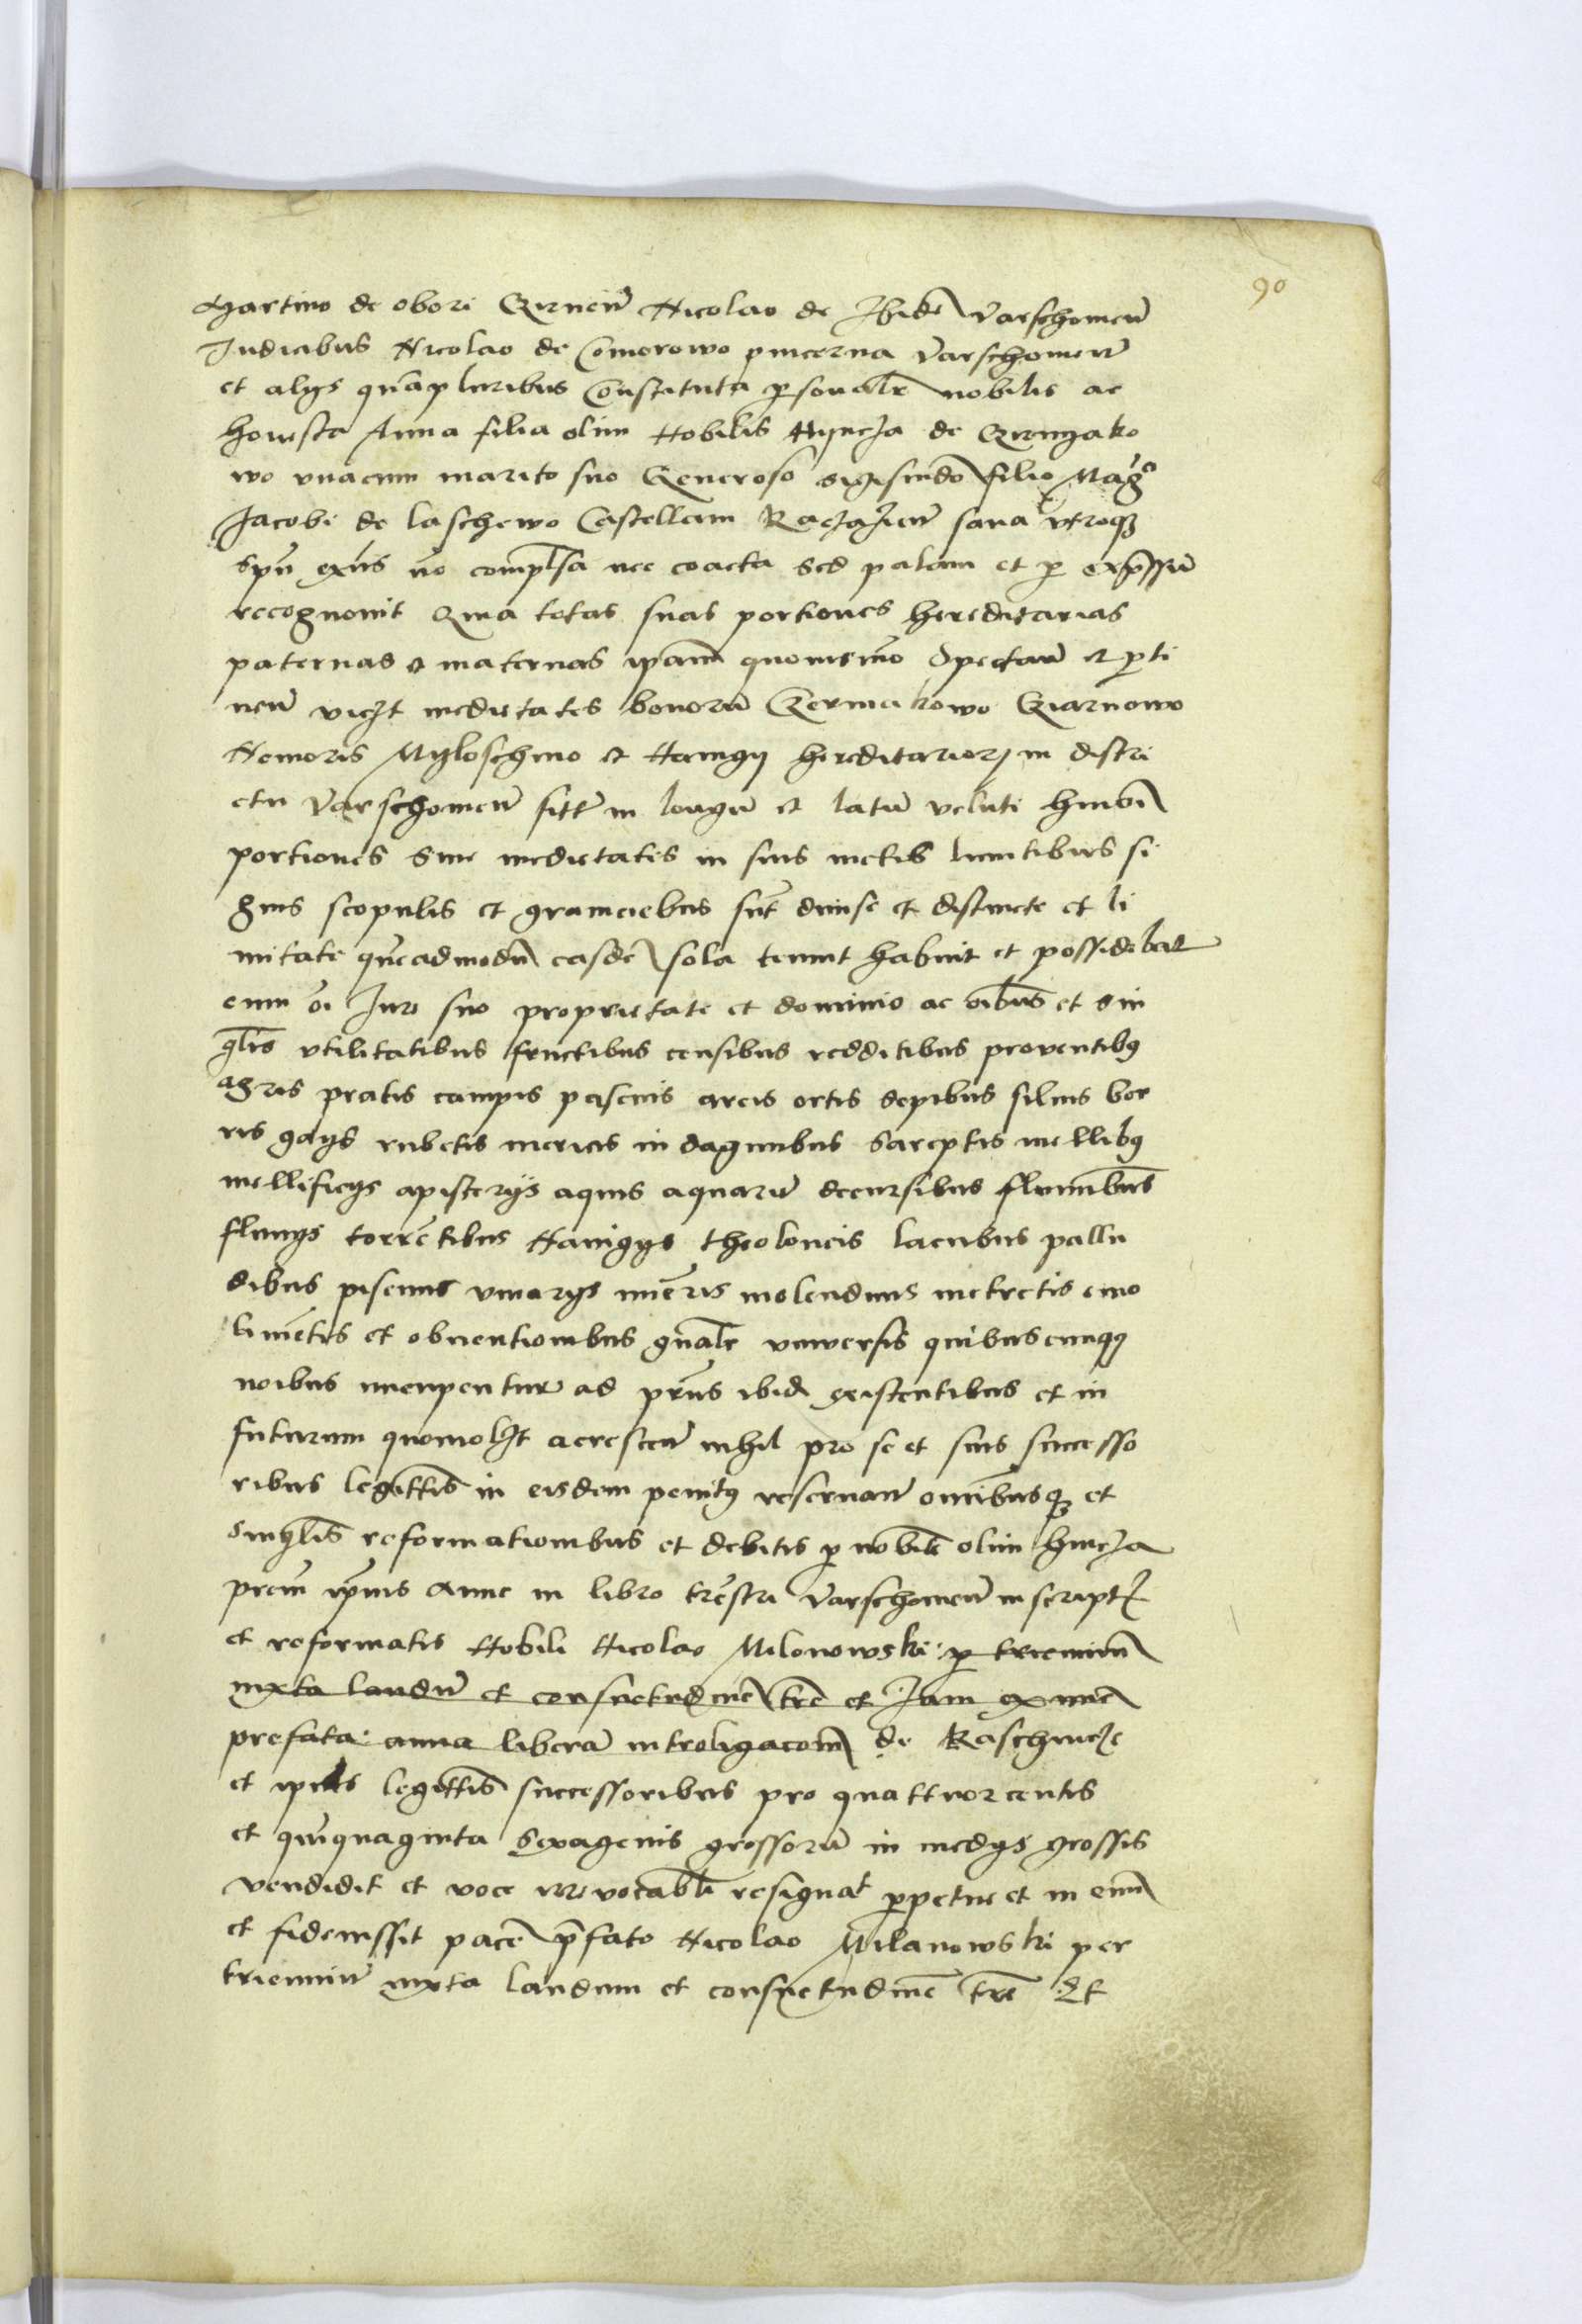 90
Martino de obori Czirnen̄ Nicolao de Ibidē Varschouien̄
Iudicibus Nicolao de Comorowo pincerna Varschouien̄
et alys quā pluribus Constituta personalr̄ nobilis ac
honesta Anna filia olim Nobilis Hyncza de
wo vnacum marito suo Generoso Sigismdo filio Mag͡ci
Iacobi de laschewo Castellani Raczazien̄ sana vtroqꝫ
spū exn̄s nō compl̄sa nec coacta sed palam et ꝑ exp̄ssum
recognouit Quia totas suas portiones hereditarias
paternas et maternas ipam̄ quouismō Spectan̄ et ꝑti
nen̄ viczt medietates bonorū Czermakowo Giarnowo
Nemoris Myloschino et Nauigy hereditarioꝝ in distri
ctu Varschouien̄ sitt̄ in longū et latū veluti hmōi
portiones siue medietates in suis metis limitibus si
gnis scopulis et graniciebus sūt diuise et distincte et li
mitate quēadmodū easdē sola tenuit habuit et possidebat
cum ōi Iure suo proprietate et dominio ac oībus et sin
glīs vtilitatibus fructibus censibus redditibus prouentibꝫ
agris pratis campis pascuis areis ortis sepibus siluis bor
ris gays rubetis mericis indaginibus Sareptis mellibꝫ
mellificys apisterys aquis aquarū decursibus fluminībus
fluuys torrētibus Nauigys theoloneis lacubus pallu
dibus piscinis viuarys minēris molendinis metretis emo
limētis et obuentionibus gnālr vniuersis quibuscunqꝫ
noībus nuncupentur ad prn̄s ibidē existentibus et in
futurum quomolꝫt accrescen̄ nihil pro se et suis successo
ribus legittīs in eisdem penitꝫ reseruan̄ omnībusqꝫ et
singlīs reformationibus et debitis ꝑ nobilē olim hincza
prēm ipīus anne in libro trēstri Varschouien̄ inscript
et reformatis Nobili Nicolao Milonowski ꝑ trienniū
iuxta laudū et consuetudinē trē et Iam
prefata anna liberā introligacom̄ de Raschincze
et ipius legittīs successoribus pro quattuorcentis
et quīquaginta Sexagenis grossorū in medys grossis
vendidit et voce irreuocabli resignat ꝑpetue et in euū
et fideiussit pacē p̄fato Nicolao Milanowski per
trienniū iuxta laudum et consuetudinē trē Et